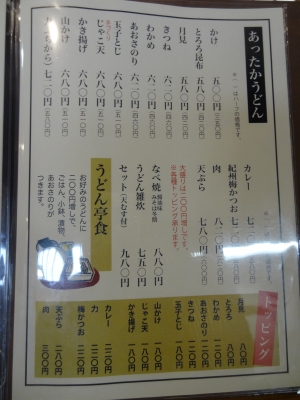 あったかうどん
かけ 五〇〇円
とろろ昆布 五八〇円
月見 五八〇円
きつね 六二〇円
わかめ 六二〇円
あおさのり 六二〇円
じゃこ天 六八〇円
玉子とじ 六八〇円
かき揚げ 六八〇円
山かけ 六八〇円
カレー
紀州梅かつお
肉
天ぷら
大盛りは二〇〇円増しです。
※各種トッピング承ります。
なべ焼 八八〇円
うどん雑炊 七五〇円
セット（天むす付） 九八〇円
うどん亭食
お好みのうどんに
二〇〇円増しで、
ごはん、小鉢、漬物、
あおさのりが
つきます。
トッピング
月見 八〇円
とろろ 八〇円
わかめ 一二〇円
あおさのり 一二〇円
きつね 一二〇円
玉子とじ 一八〇円
山かけ 一八〇円
じゃこ天 一八〇円
かき揚げ 一八〇円
カレー 二二〇円
力 二二〇円
梅かつお 二二〇円
天ぷら 二八〇円
肉 三〇〇円